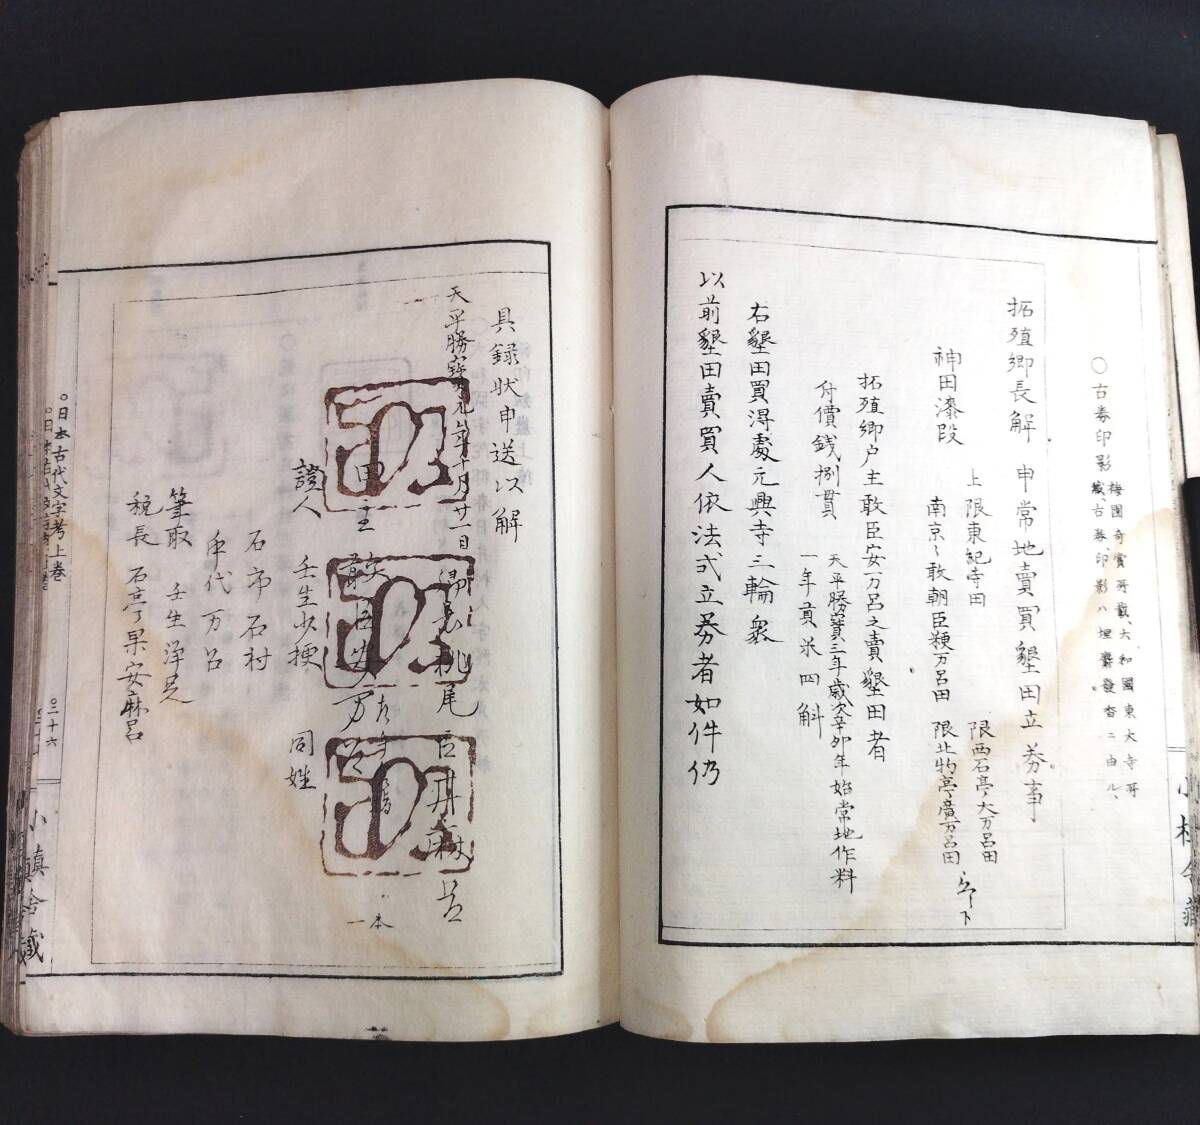 ○古券印影
梅園奇賞所載、大和國東大寺所
藏、古券印影ハ埋麝發香ニ由ル、
拓殖郷長解 申常地賣買墾田立券事
神田漆段
上限東紀寺田 限西石亭大万呂田
南京々敢朝臣粳万呂田 限北物亭廣万呂田
拓殖郷戸主敢臣安万呂之賣墾田者
付價銭捌貫
天平勝寶三年歳次辛卯年始常地作料
一年貢米四斛
右墾田買得處元興寺三輪衆
以前墾田賣買人依法式立券者如件仍
具録状申送以解
天平勝寳元年十月廿一日
田主 敢臣安万呂
證人 壬生少梗 同姓
石市石村
万呂
筆取 壬生浄足
税長 石亭果安麻呂
一本
○日本古代文字考上巻
○三十六
小槙舎藏